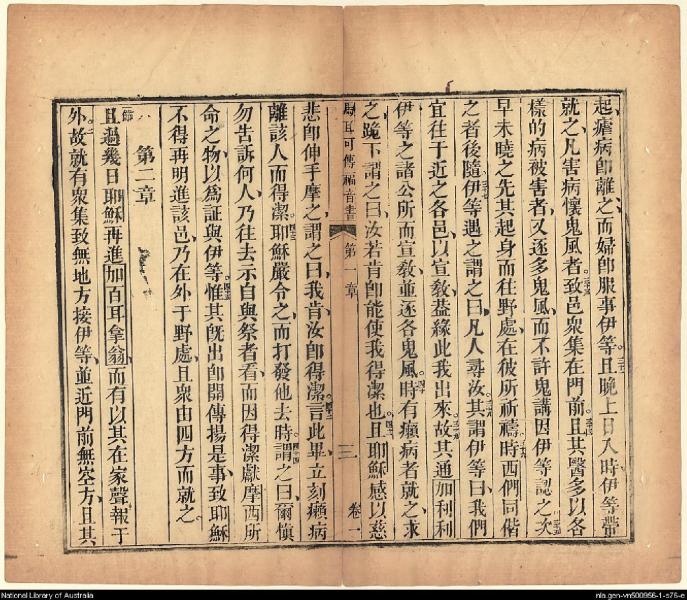 起瘧病卽離之而婦卽服事伊等且晚上日入時伊等帶
就之凡害病懷鬼風者致邑衆集在門前且其醫多以各
樣的病被害者又逐多鬼風而不許鬼講因伊等認之次
早未曉之先其起身而往野處在彼所祈禱時西們同偕
之者後隨伊等遇之謂之曰凡人尋汝其謂伊等曰我們
宜往于近之各邑以宣敎葢緣此我出來故其通加利利
伊等之諸公所而宣敎並逐各鬼風時有癩病者就之求
之跪下謂之曰汝若肯卽能使我得潔也且耶穌感以慈
馬耳可傳福音書 第一章 三 卷一
悲卽伸手摩之謂之曰我肯汝卽得潔言此畢立刻癩病
離該人而得潔耶穌嚴令之而打發他去時謂之曰爾愼
勿告訴何人乃往去示自與祭者看而因得潔獻摩西所
命之物以爲証與伊等惟其旣出卽開傳揚是事致耶穌
不得再明進該邑乃在外于野處且衆由四方而就之
第二章
節一 且過幾日耶穌再進加百耳拿翁而有以其在家聲報于
外故就有衆集致無地方接伊等並近門前無空方且其
National Library of Australia
nla.gen-vn500956-1-s76-e